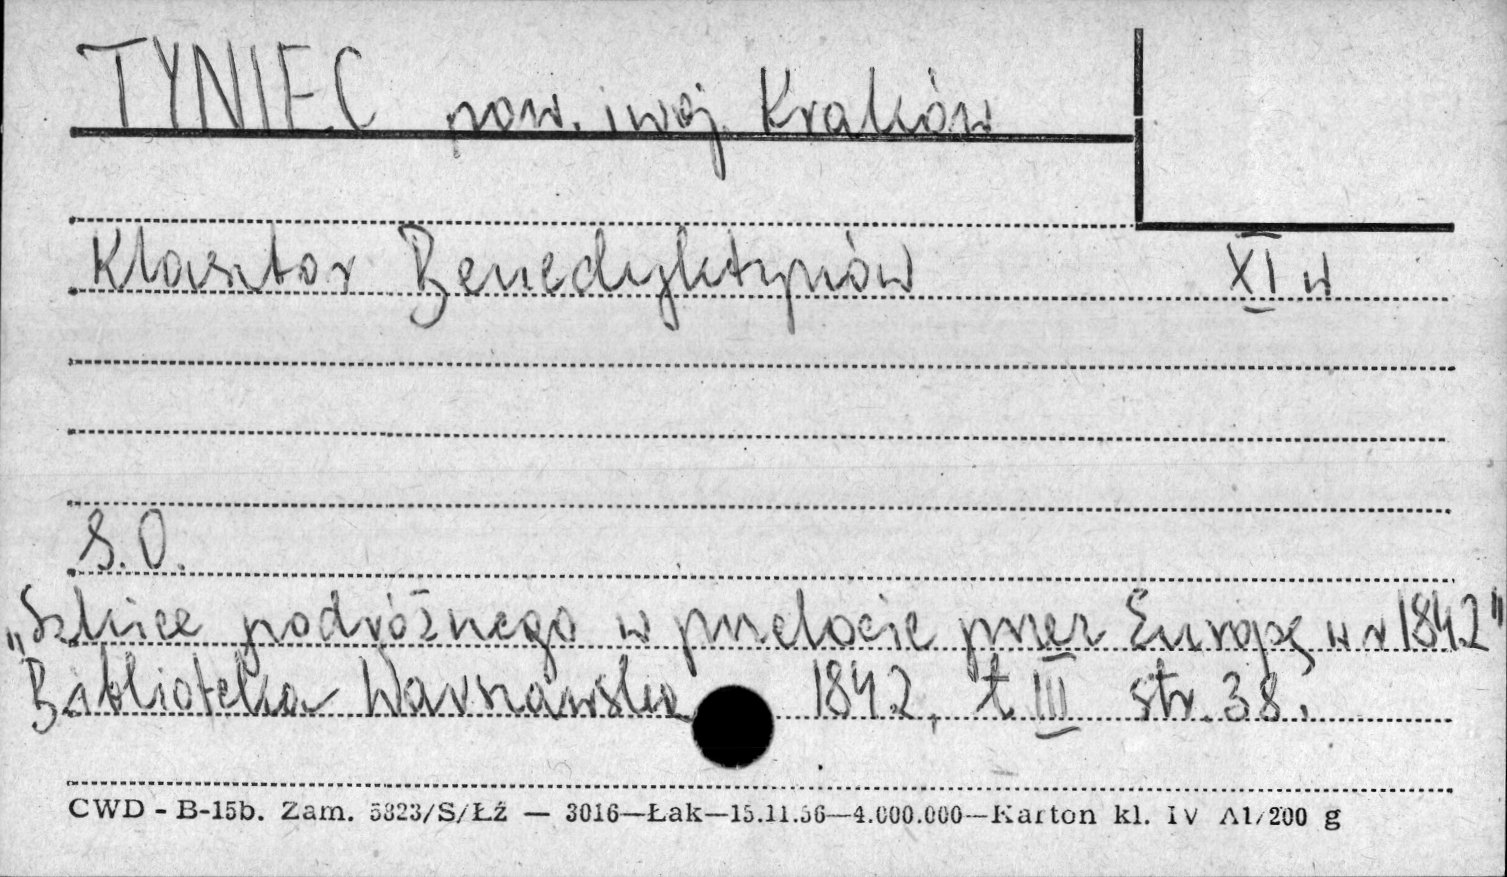 TYNIEC pow. i woj. Kraków
Klasztor Benedyktynów XI w
S.O.
„Szkice podróżnego w przelocie przez Europę w r 1842"
Biblioteka Warszawska 1842, t III str. 38.
CWD - B-15b. Zam. 5323/S/Łź — 3016—Łak—15.11.56—4.000.000—Karton kl. IV A1/200 g